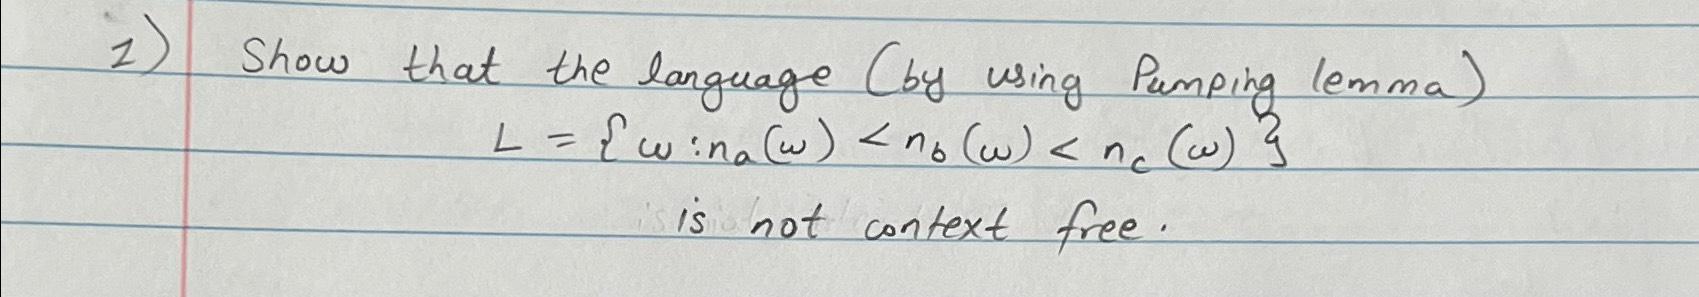 1) Show that the language (by using Pumping lemma)
L = { w : nₐ(w) < n_b(w) < n_c(w) }
is not context free.